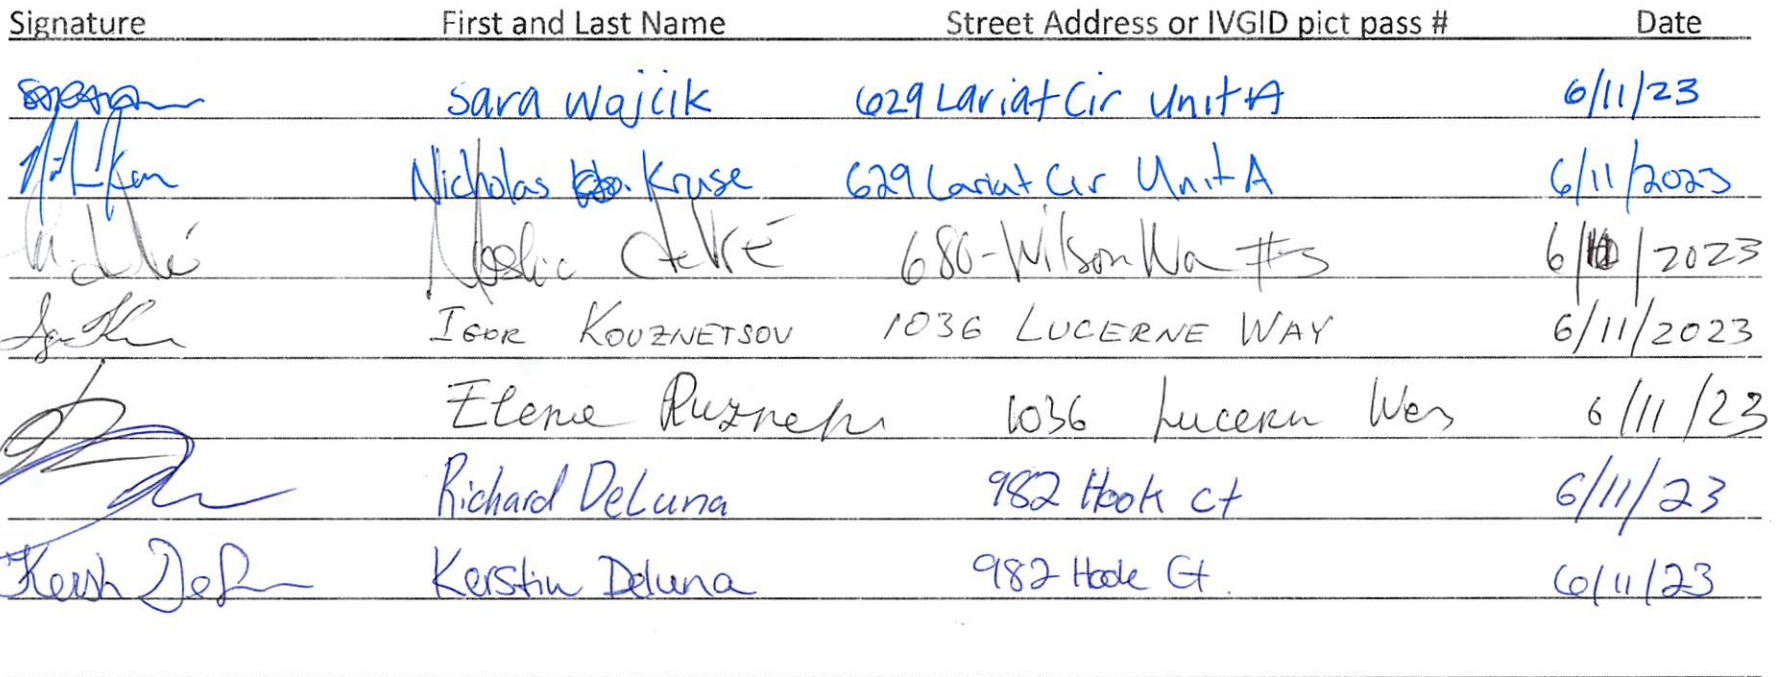 Signature First and Last Name Street Address or IVGID pict pass # Date
Sara Wojcik 629 Lariat Cir Unit A 6/11/23
Nicholas Kruse 629 Lariat Cir Unit A 6/11/2023
680-Wilson Wa #3 6/ /2023
IGOR KOUZNETSOV 1036 LUCERNE WAY 6/11/2023
Elena 1036 Lucern 6/11/23
Richard DeLuna 982 Hook Ct 6/11/23
Kerstin Deluna 982 Hook Ct. 6/11/23